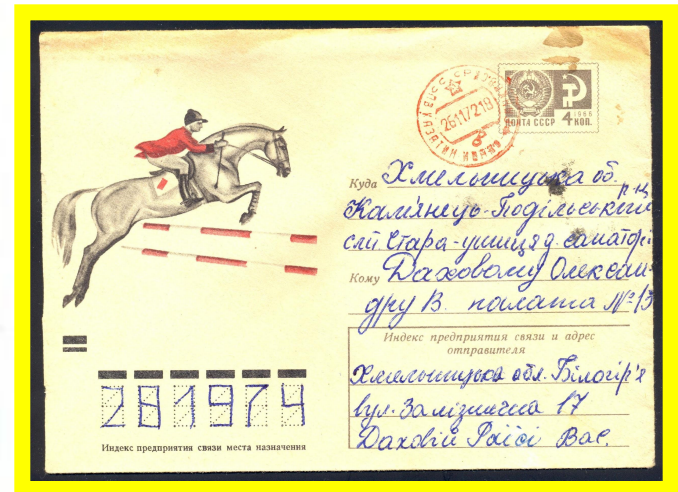 ПОЧТА СССР 4 КОП. 1966
СССР
26117219
Куда Хмельницька об.
р-н
Кам'янець-Подільський
смт. Стара-ушиця д. санаторі
Кому Даховому Олексан-
дру В. палата № 13
Индекс предприятия связи и адрес
отправителя
Хмельницька обл. Білогір'я
вул. Залізнична 17
Даховій Раїсі Вас.
281974
Индекс предприятия связи места назначения